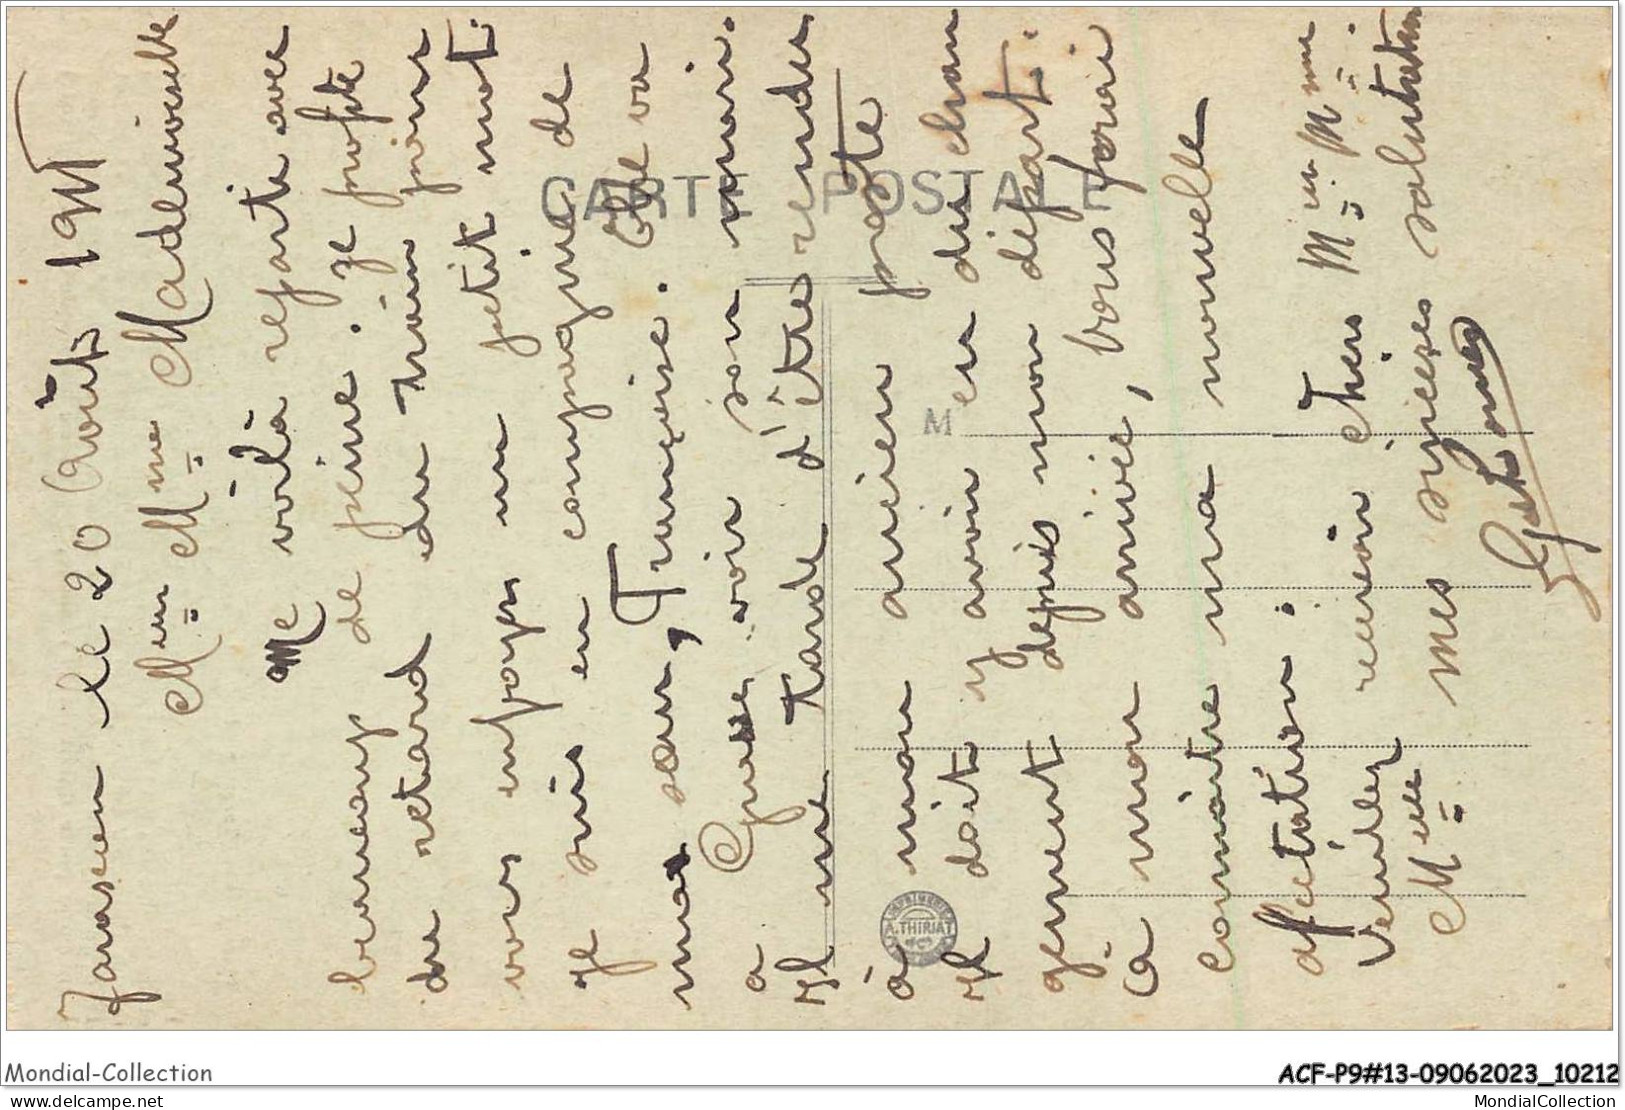 le 20 Août 19
Mme Mademoiselle
Me voilà repartie avec
beaucoup de peine. Je profite
du retard du train pour
vous un petit mot.
Je suis en compagnie de
ma sœur, Françoise. Elle va
a voir son mari.
Il me tarde d'être rendu
à mon ancien poste
Il doit y avoir eu du chan
gement depuis mon départ.
à mon arrivée, vous ferai
connaitre ma nouvelle
affectation.
Veuillez recevoir chers
Melle mes salutations
CARTE POSTALE
M
IMPRIMERIE
A. THIRIAT
Mondial-Collection
ACF-P9#13-09062023_10212
www.delcampe.net
MondialCollection